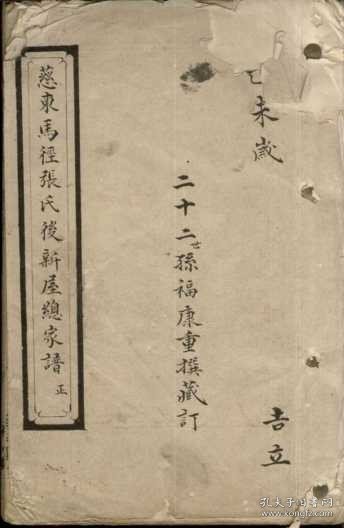 己未歲
二十二世孫福康重撰藏訂
吉立
慈東馬徑張氏後新屋總家譜 正
孔夫子旧书网